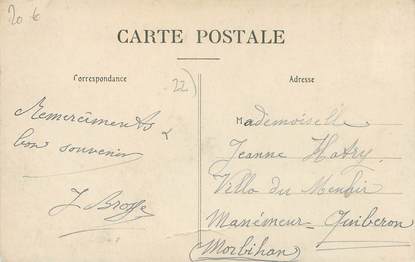 20 €
CARTE POSTALE
Correspondance
22
Adresse
Remerciments &
bon souvenir
J. Brosse
Mademoiselle
Jeanne Hatry
Villa du Menhir
Manémeur - Quiberon
(Morbihan)